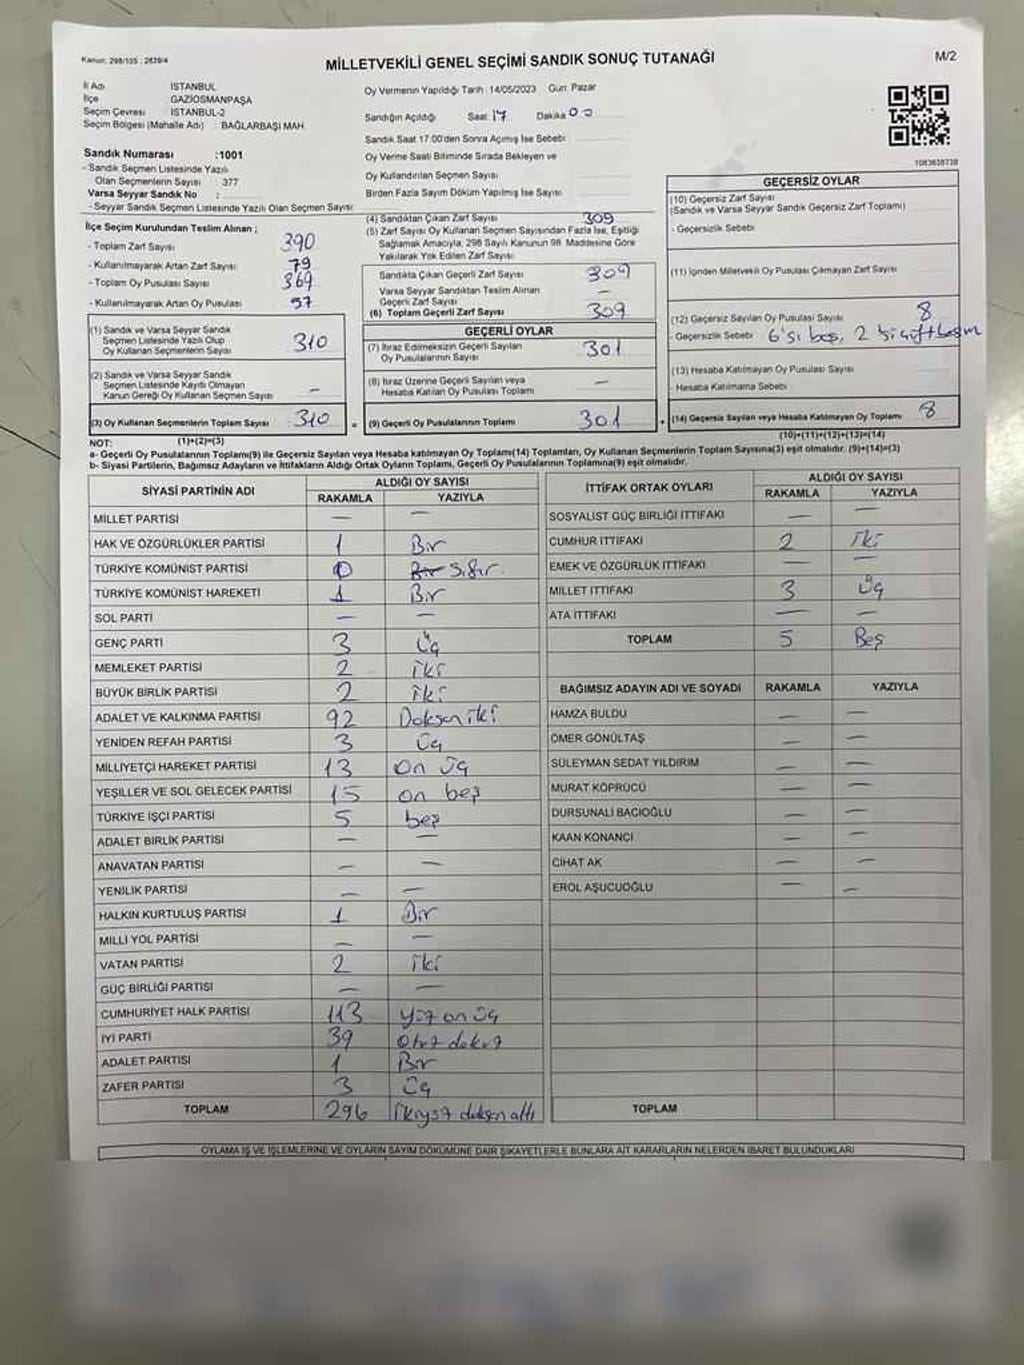 Kanun: 298/105 ; 2839/4
MİLLETVEKİLİ GENEL SEÇİMİ SANDIK SONUÇ TUTANAĞI
M/2
İl Adı İSTANBUL
İlçe GAZİOSMANPAŞA
Seçim Çevresi İSTANBUL-2
Seçim Bölgesi (Mahalle Adı) : BAĞLARBAŞI MAH.
Sandık Numarası :1001
- Sandık Seçmen Listesinde Yazılı
Olan Seçmenlerin Sayısı : 377
Varsa Seyyar Sandık No :
- Seyyar Sandık Seçmen Listesinde Yazılı Olan Seçmen Sayısı
Oy Vermenin Yapıldığı Tarih : 14/05/2023 Gün: Pazar
Sandığın Açıldığı Saat: 17 Dakika 00
Sandık Saat 17:00'den Sonra Açılmış İse Sebebi
Oy Verme Saati Bitiminde Sırada Bekleyen ve
Oy Kullandırılan Seçmen Sayısı
Birden Fazla Sayım Döküm Yapılmış İse Sayısı
1083638739
İlçe Seçim Kurulundan Teslim Alınan ;
- Toplam Zarf Sayısı 390
- Kullanılmayarak Artan Zarf Sayısı 79
- Toplam Oy Pusulası Sayısı 369
- Kullanılmayarak Artan Oy Pusulası 57
(1) Sandık ve Varsa Seyyar Sandık
Seçmen Listesinde Yazılı Olup
Oy Kullanan Seçmenlerin Sayısı 310
(2) Sandık ve Varsa Seyyar Sandık
Seçmen Listesinde Kayıtlı Olmayan
Kanun Gereği Oy Kullanan Seçmen Sayısı —
(3) Oy Kullanan Seçmenlerin Toplam Sayısı 310 =
(1)+(2)=(3)
(4) Sandıktan Çıkan Zarf Sayısı 309
(5) Zarf Sayısı Oy Kullanan Seçmen Sayısından Fazla İse, Eşitliği
Sağlamak Amacıyla, 298 Sayılı Kanunun 98. Maddesine Göre
Yakılarak Yok Edilen Zarf Sayısı
Sandıkta Çıkan Geçerli Zarf Sayısı 309
Varsa Seyyar Sandıktan Teslim Alınan
Geçerli Zarf Sayısı —
(6) Toplam Geçerli Zarf Sayısı 309
GEÇERLİ OYLAR
(7) İtiraz Edilmeksizin Geçerli Sayılan
Oy Pusulalarının Sayısı 301
(8) İtiraz Üzerine Geçerli Sayılan veya
Hesaba Katılan Oy Pusulası Toplamı —
(9) Geçerli Oy Pusulalarının Toplamı 301 +
GEÇERSİZ OYLAR
(10) Geçersiz Zarf Sayısı
(Sandık ve Varsa Seyyar Sandık Geçersiz Zarf Toplamı)
- Geçersizlik Sebebi
(11) İçinden Milletvekili Oy Pusulası Çıkmayan Zarf Sayısı
(12) Geçersiz Sayılan Oy Pusulası Sayısı 8
- Geçersizlik Sebebi 6'sı boş, 2'si çift basım
(13) Hesaba Katılmayan Oy Pusulası Sayısı
- Hesaba Katılmama Sebebi
(14) Geçersiz Sayılan veya Hesaba Katılmayan Oy Toplamı 8
(10)+(11)+(12)+(13)=(14)
NOT:
a- Geçerli Oy Pusulalarının Toplamı(9) ile Geçersiz Sayılan veya Hesaba katılmayan Oy Toplam(14) Toplamları, Oy Kullanan Seçmenlerin Toplam Sayısına(3) eşit olmalıdır. (9)+(14)=(3)
b- Siyasi Partilerin, Bağımsız Adayların ve İttifakların Aldığı Ortak Oyların Toplamı, Geçerli Oy Pusulalarının Toplamına(9) eşit olmalıdır.
SİYASİ PARTİNİN ADI ALDIĞI OY SAYISI
RAKAMLA YAZIYLA
MİLLET PARTİSİ — —
HAK VE ÖZGÜRLÜKLER PARTİSİ 1 Bir
TÜRKİYE KOMÜNİST PARTİSİ 0 Bir Sıfır.
TÜRKİYE KOMÜNİST HAREKETİ 1 Bir
SOL PARTİ — —
GENÇ PARTİ 3 Üç
MEMLEKET PARTİSİ 2 iki
BÜYÜK BİRLİK PARTİSİ 2 iki
ADALET VE KALKINMA PARTİSİ 92 Doksan iki
YENİDEN REFAH PARTİSİ 3 Üç
MİLLİYETÇİ HAREKET PARTİSİ 13 on üç
YEŞİLLER VE SOL GELECEK PARTİSİ 15 on beş
TÜRKİYE İŞÇİ PARTİSİ 5 beş
ADALET BİRLİK PARTİSİ — —
ANAVATAN PARTİSİ — —
YENİLİK PARTİSİ — —
HALKIN KURTULUŞ PARTİSİ 1 Bir
MİLLİ YOL PARTİSİ — —
VATAN PARTİSİ 2 iki
GÜÇ BİRLİĞİ PARTİSİ — —
CUMHURİYET HALK PARTİSİ 113 yüz on üç
İYİ PARTİ 39 Otuz dokuz
ADALET PARTİSİ 1 Bir
ZAFER PARTİSİ 3 Üç
TOPLAM 296 ikiyüz doksan altı
İTTİFAK ORTAK OYLARI ALDIĞI OY SAYISI
RAKAMLA YAZIYLA
SOSYALİST GÜÇ BİRLİĞİ İTTİFAKI — —
CUMHUR İTTİFAKI 2 iki
EMEK VE ÖZGÜRLÜK İTTİFAKI — —
MİLLET İTTİFAKI 3 üç
ATA İTTİFAKI — —
TOPLAM 5 Beş
BAĞIMSIZ ADAYIN ADI VE SOYADI RAKAMLA YAZIYLA
HAMZA BULDU — —
ÖMER GÖNÜLTAŞ — —
SÜLEYMAN SEDAT YILDIRIM — —
MURAT KÖPRÜCÜ — —
DURSUNALİ BACIOĞLU — —
KAAN KONANCİ — —
CİHAT AK — —
EROL AŞUCUOĞLU — —
TOPLAM
OYLAMA İŞ VE İŞLEMLERİNE VE OYLARIN SAYIM DÖKÜMÜNE DAİR ŞİKAYETLERLE BUNLARA AİT KARARLARIN NELERDEN İBARET BULUNDUKLARI